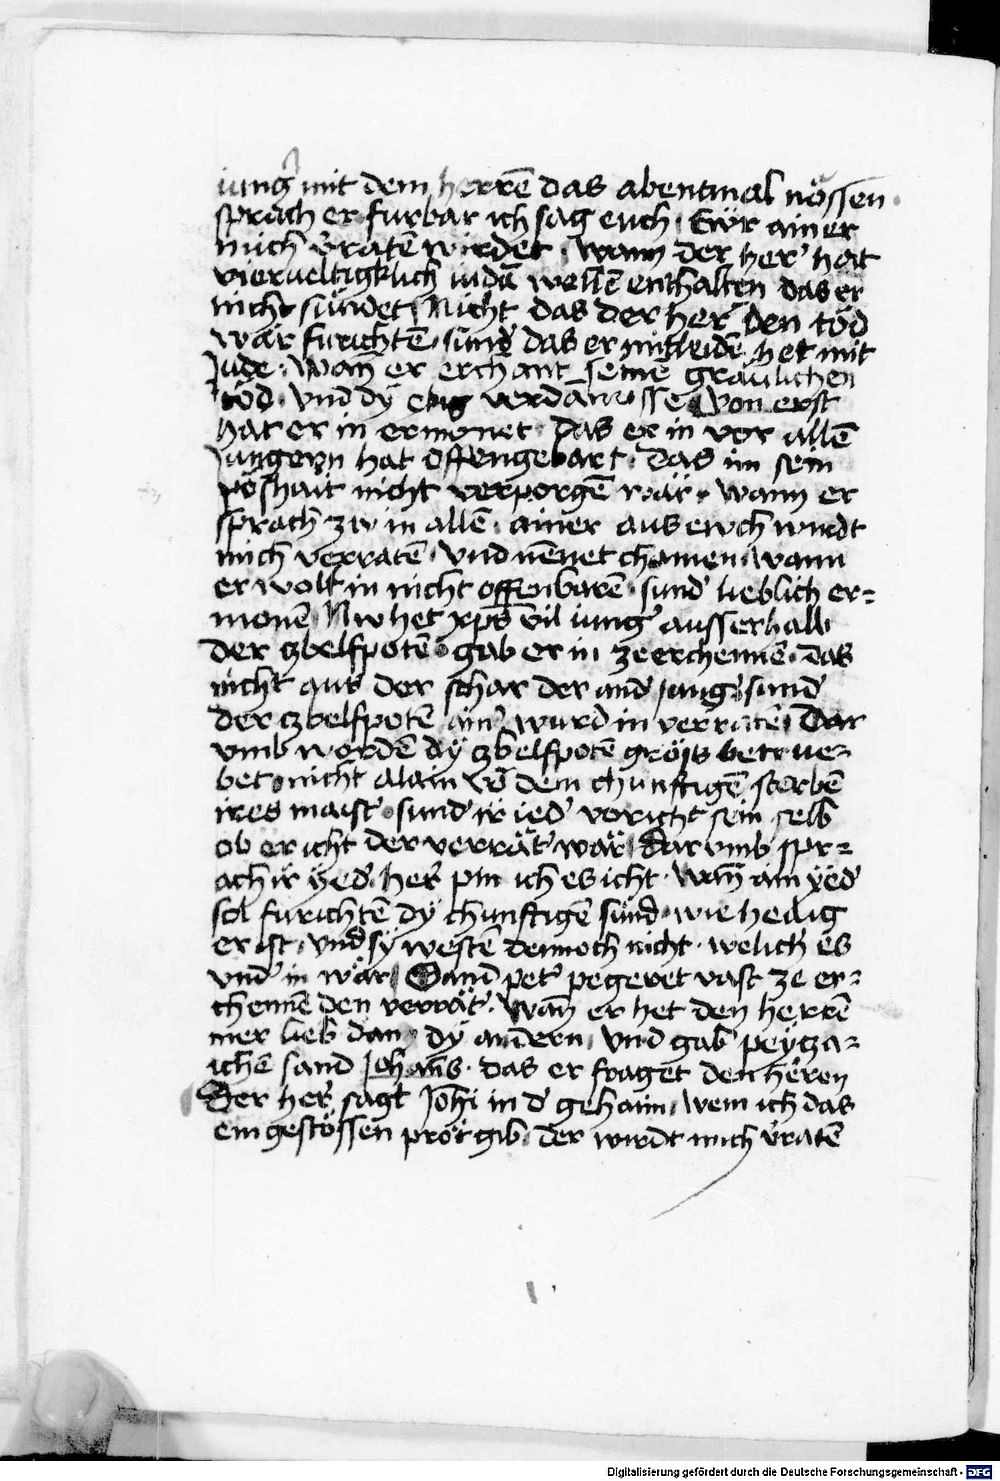 iung᷑ mit dem herrē das abentmal nössen
sprach er furbar ich sag euch · Ewr ainer
mich v᷑ratē wirdet · wann der her᷑ hat
vierueltigklich iudā wellē enthalten das er
nicht sündet Nicht das der her᷑ den tod
wär furichtē · sund᷑ das er mitleidē het mit
Jude · wan̄ er erchant seinē gräulichen
tod · vnd dy ewig verdamnusse Von erst
hat er in ermonet · Das er in vor allē
Jungern hat offengebart · das im sein
poshait nicht verporgē wär · wann er
sprach zw in allē · ainer aus ewch wirdt
mich verratē · vnd nēnet chainen · wann
er wolt in nicht offenbarē · sund᷑ lieblich er=
monē Nw het xp̄s vil iung᷑ ausserhalb
der zbelfpotē · gab er in ze erchennē · das
nicht aus der schar der and᷑ Jung᷑ sund᷑
der zbelfpotē ain᷑ wurd in verratē Dar
vmb worden dÿ zbelfpotē grös betrue=
bet · nicht alain vō dem chunftigē sterbē
ires maist᷑ · sund᷑ ir ied᷑ voricht sein selb
ob er icht der verrät᷑ wär Dar vmb spr=
ach ir yed᷑ · her᷑ pin ich es icht · Wan̄ ain yed᷑
sol furichtē dÿ chunftigē sünd · wie heilig
er ist · vnd sy westē dennoch nicht · welich᷑ es
vnd᷑ in wär Sand pet᷑ pegeret vast ze er=
chennē den verrät᷑ · Wan̄ er het den herrē
mer lieb dan dy andern · vnd gab peyza=
ichē sand Johan̄s · das er fraget den heren
Der her᷑ sagt Joh̄i in d᷑ gehaim · wem ich das
eingestössen pröt gib · der wirdt mich v᷑ratē
Digitalisierung gefördert durch die Deutsche Forschungsgemeinschaft - DFG